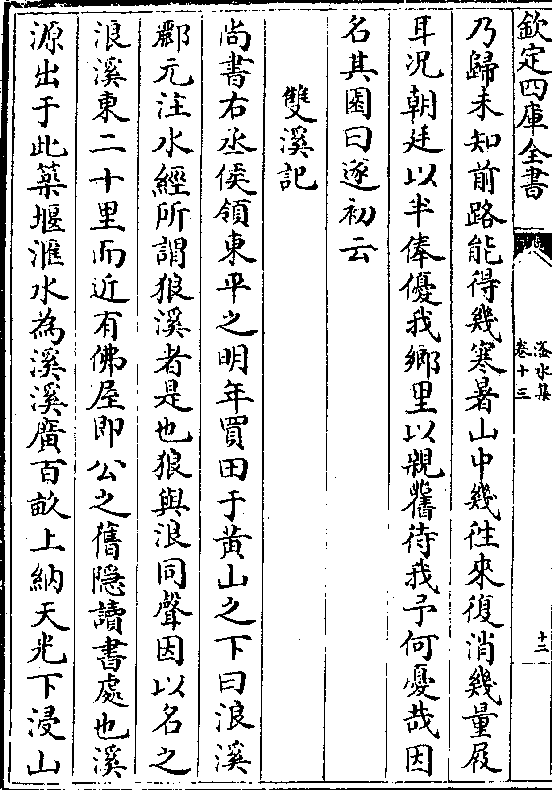 欽定四庫全書
滏水集
卷十三
十三
乃歸未知前路能得幾寒暑山中幾往來復消幾量屐
耳况朝廷以半俸優我鄉里以親舊待我予何憂哉因
名其園曰遂初云
雙溪記
尚書右丞侯領東平之明年買田于黄山之下曰浪溪
酈元注水經所謂狼溪者是也狼與浪同聲因以名之
浪溪東二十里而近有佛屋即公之舊隱讀書處也溪
源出于此築堰滙水為溪溪廣百畝上納天光下浸山